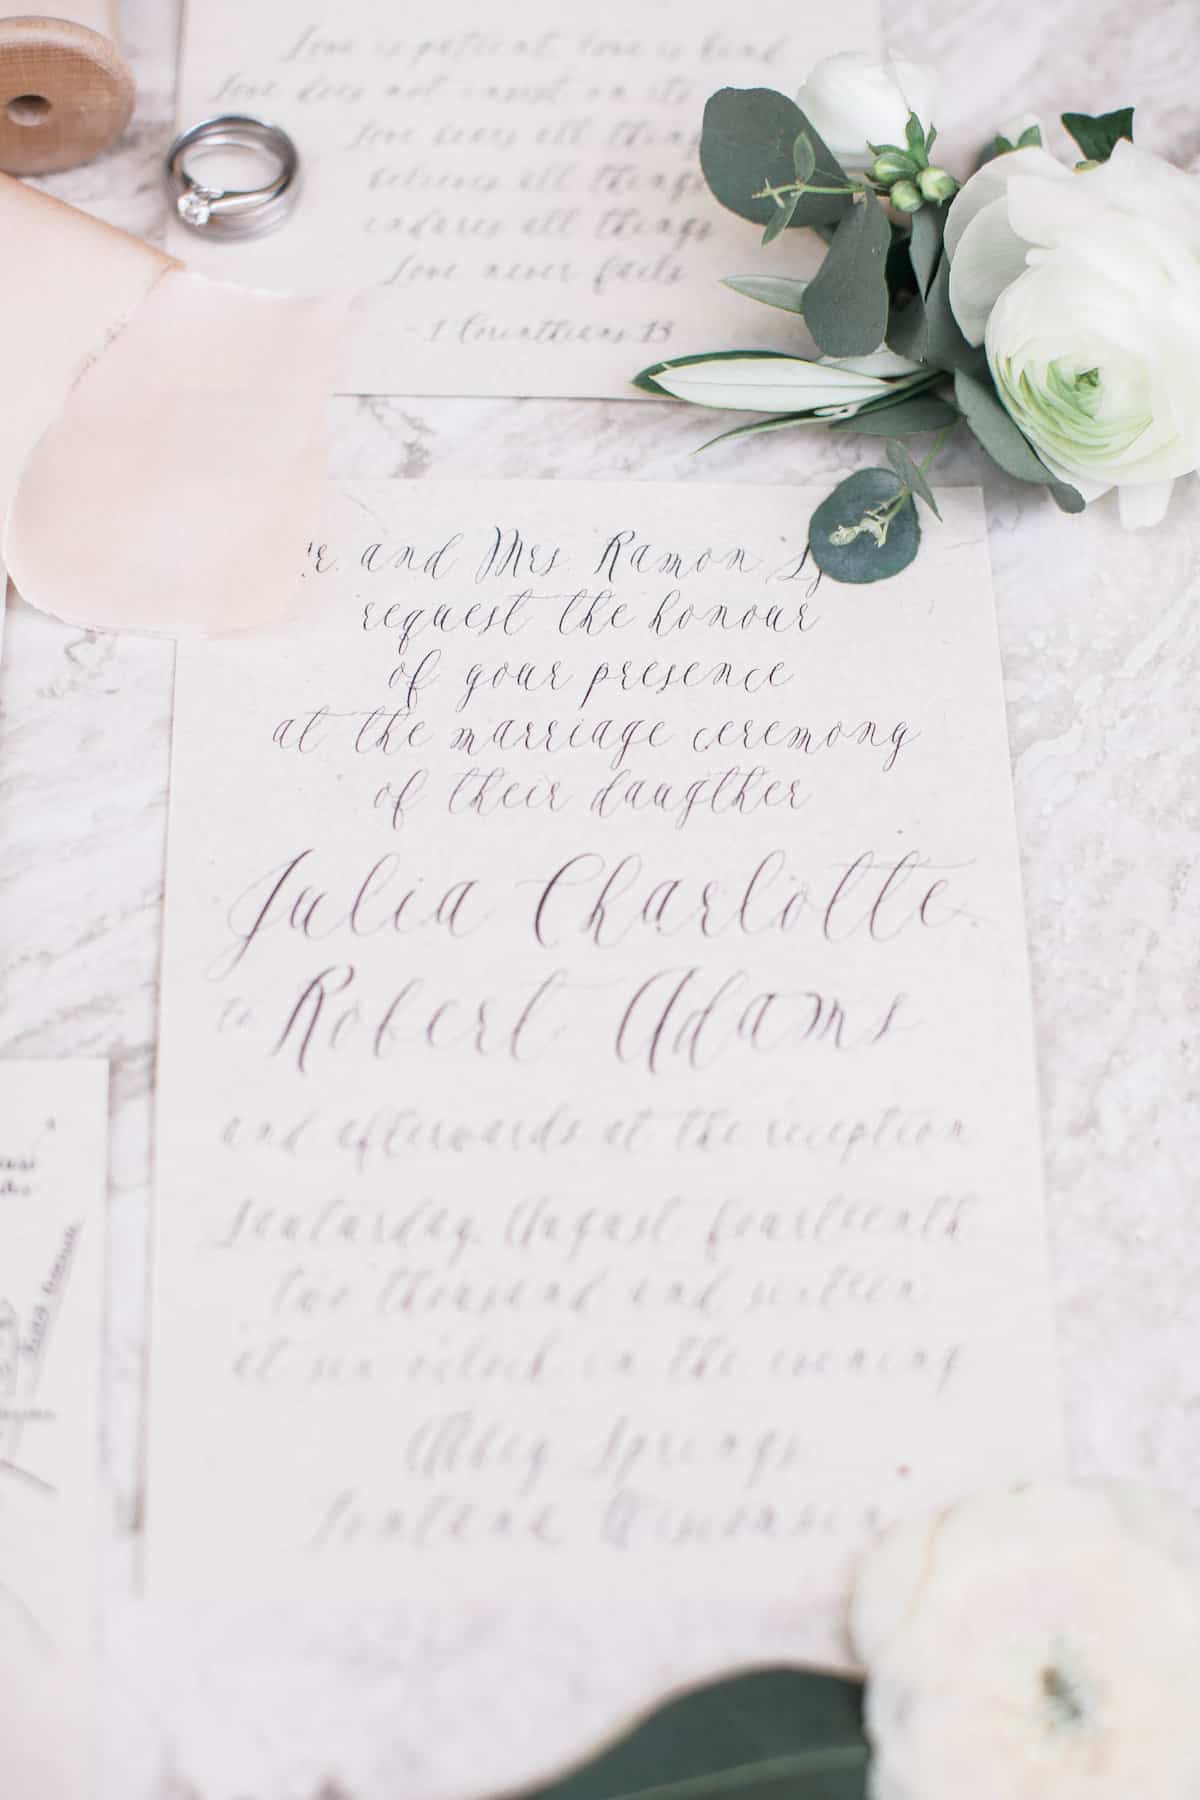 Love is patient, love is kind
Love does not insist on its
Love bears all things
believes all things
endures all things
Love never fails
- 1 Corinthians 13
and Mrs. Ramon
request the honour
of your presence
at the marriage ceremony
of their daugther
Julia Charlotte
to Robert Adams
and afterwards at the reception
Saturday August fourteenth
two thousand and sixteen
at six o'clock in the evening
Abbey Springs
Fontana Wisconsin